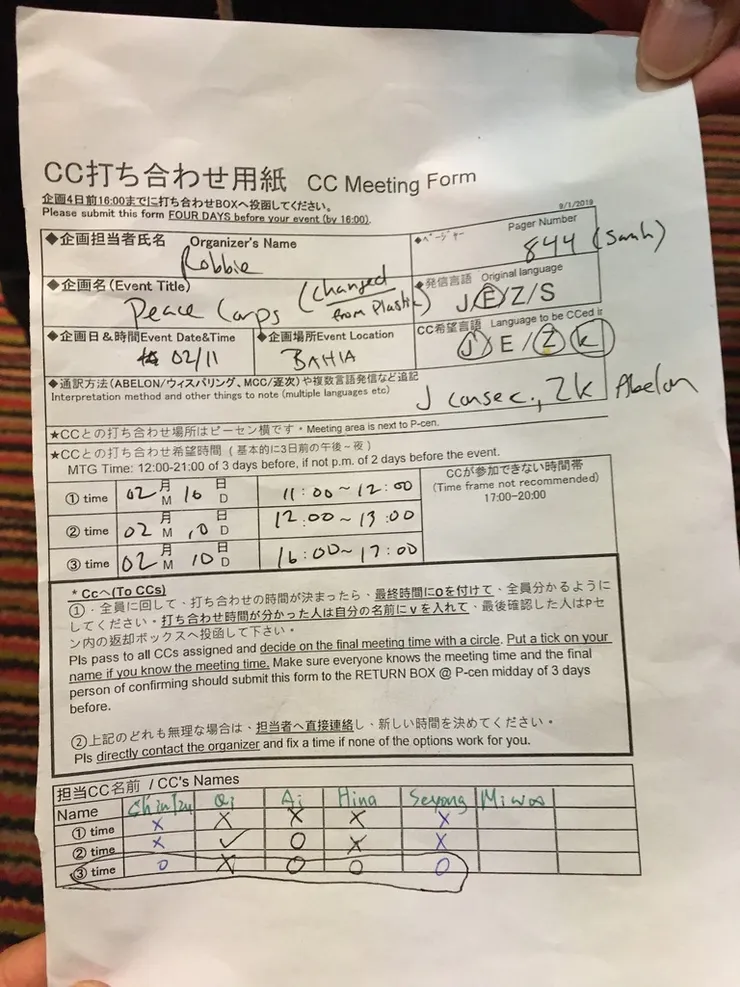 CC打ち合わせ用紙 CC Meeting Form
9/1/2019
企画4日前16:00までに打ち合わせBOXへ投函してください。
Please submit this form FOUR DAYS before your event (by 16:00).
◆企画担当者氏名 Organizer's Name
Robbie
◆ページャー Pager Number
844 (Sarah)
◆企画名(Event Title)
Peace Corps (changed from Plastic)
◆発信言語 Original language
J/E/Z/S
◆企画日&時間Event Date&Time
02/11
◆企画場所Event Location
BAHIA
CC希望言語 Language to be CCed in
J/E/Z/K
◆通訳方法(ABELON/ウィスパリング、MCC/逐次)や複数言語発信など追記
Interpretation method and other things to note (multiple languages etc)
J consec., ZK Abelon
★CCとの打ち合わせ場所はピーセン横です・Meeting area is next to P-cen.
★CCとの打ち合わせ希望時間(基本的に3日前の午後~夜)
MTG Time: 12:00-21:00 of 3 days before, if not p.m. of 2 days before the event.
CCが参加できない時間帯
(Time frame not recommended)
17:00-20:00
① time 02 月 M 10 日 D 11:00~12:00
② time 02 月 M 10 日 D 12:00~13:00
③ time 02 月 M 10 日 D 16:00~17:00
* Ccへ(To CCs)
①・全員に回して、打ち合わせの時間が決まったら、最終時間にOを付けて、全員分かるように
してください・打ち合わせ時間が分かった人は自分の名前にVを入れて、最後確認した人はPセ
ン内の返却ボックスへ投函して下さい・
Pls pass to all CCs assigned and decide on the final meeting time with a circle. Put a tick on your
name if you know the meeting time. Make sure everyone knows the meeting time and the final
person of confirming should submit this form to the RETURN BOX @ P-cen midday of 3 days
before.
②上記のどれも無理な場合は、担当者へ直接連絡し、新しい時間を決めてください・
Pls directly contact the organizer and fix a time if none of the options work for you.
担当CC名前 / CC's Names
Name Qi Ai Hina Seyong
① time X X X X X
② time X ✓ O X X
③ time O X O O O